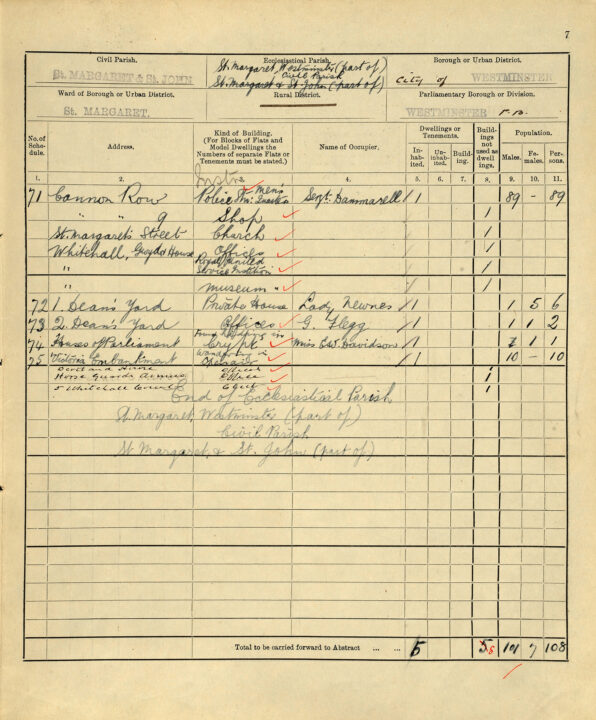 7
Civil Parish.
St. MARGARET & St. JOHN
Ecclesiastical Parish.
St. Margaret, Westminster (part of)
Civil Parish
St. Margaret & St. John (part of)
Borough or Urban District.
City of WESTMINSTER
Ward of Borough or Urban District.
St. MARGARET.
Rural District.
Parliamentary Borough or Division.
WESTMINSTER
No. of Schedule.
Address.
Kind of Building.
(For Blocks of Flats and Model Dwellings the Numbers of separate Flats or Tenements must be stated.)
Name of Occupier.
Dwellings or Tenements.
Inhabited.
Uninhabited.
Building.
Buildings not used as dwellings.
Population.
Males.
Females.
Persons.
1. 2. 3. 4. 5. 6. 7. 8. 9. 10. 11.
71 Cannon Row Police Men's 1 89 - 89
" " 9 Shop 1
St. Margaret's Street Church 1
Whitehall, Gwydyr House Offices 1
" Royal United Service Institution 1
" Museum 1
72 1 Dean's Yard Private House Lady Newnes 1 1 5 6
73 2 Dean's Yard Offices G. Flegg 1 1 1 2
74 Houses of Parliament Crypt Miss E.W. Davidson 1 1 1
75 Victoria Embankment 1 10 - 10
Scotland House Offices 1
Horse Guards Avenue Office 1
5 Whitehall Court Club 1
End of Ecclesiastical Parish
St. Margaret, Westminster (part of)
Civil Parish
St Margaret & St. John (part of)
Total to be carried forward to Abstract ... ... 5 5 8 101 7 108